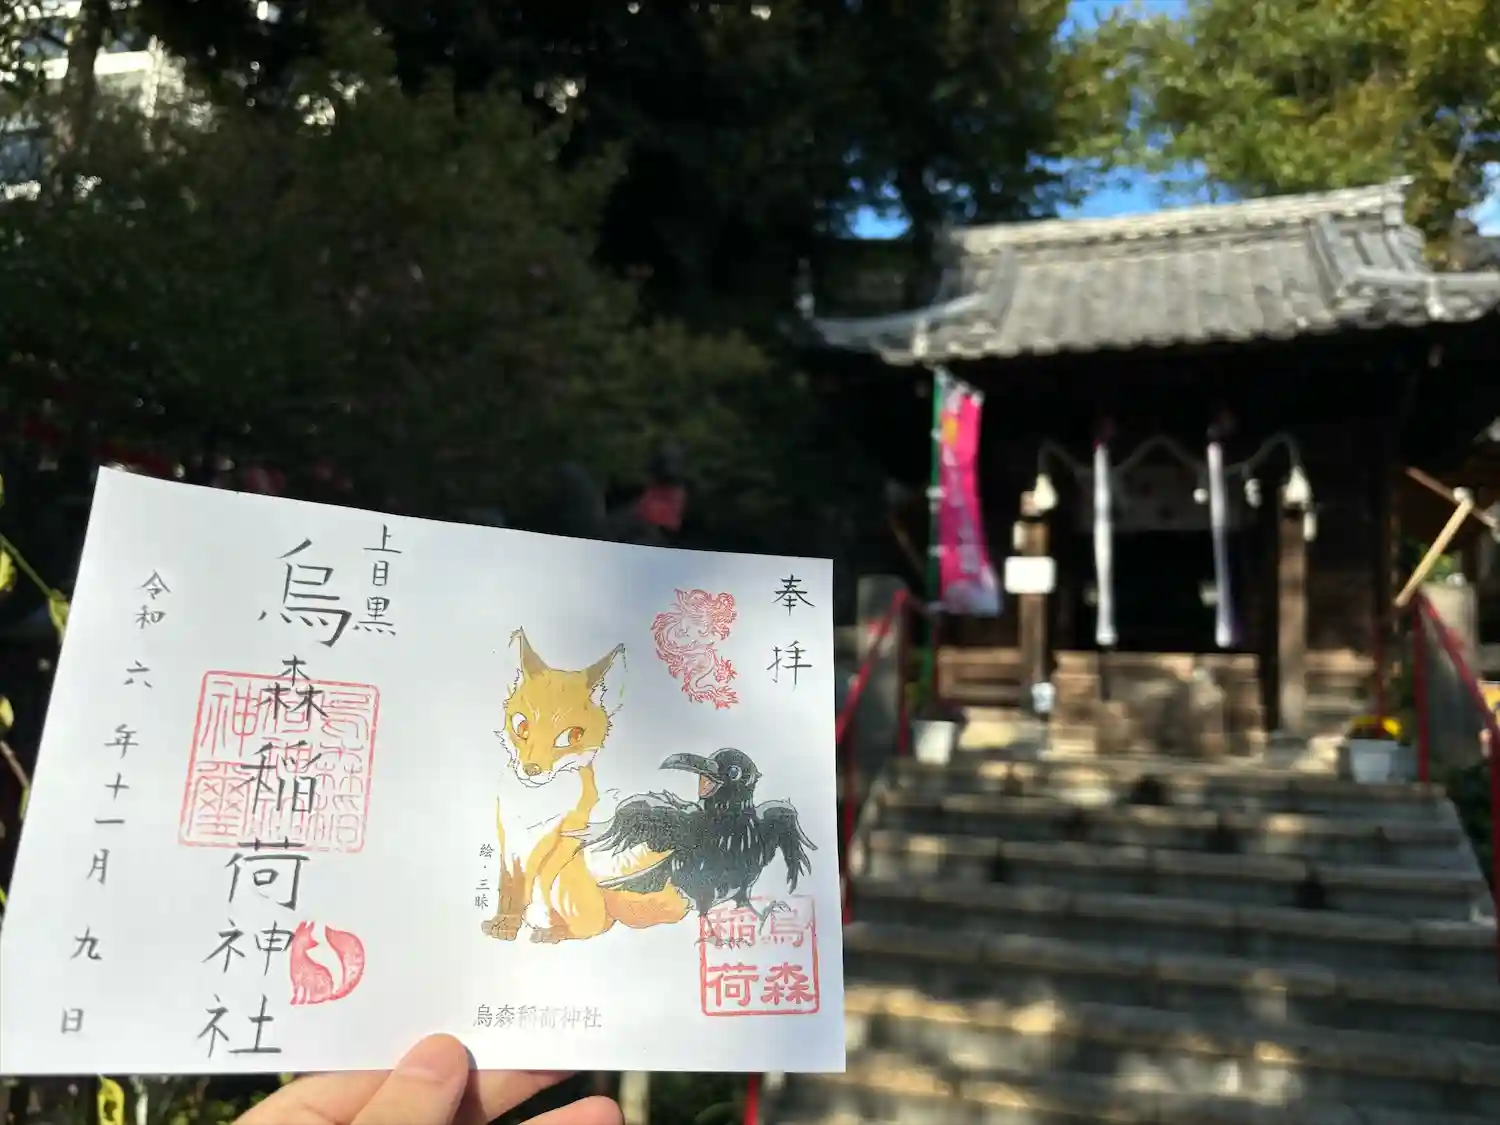 奉拝
上目黒
烏森稲荷神社
令和六年十一月九日
絵・三昧
烏森稲荷神社
烏森
稲荷